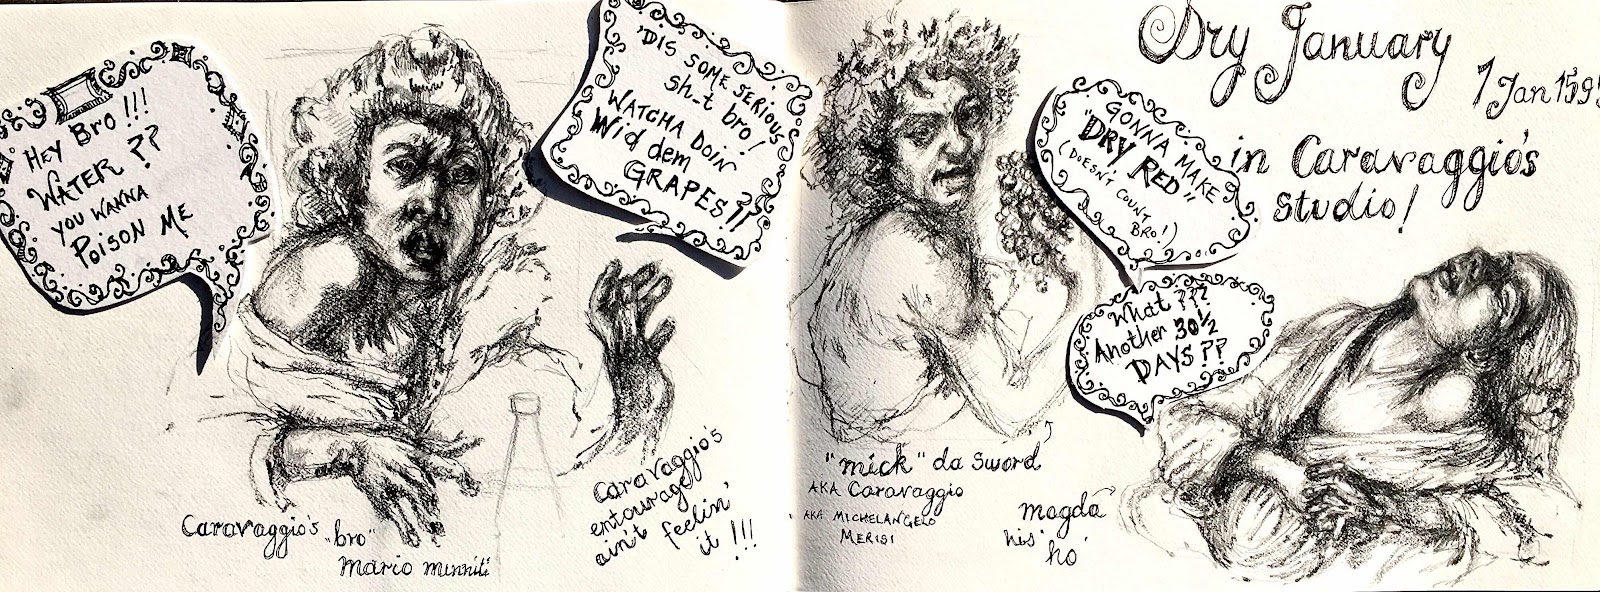 Hey Bro!!!
WATER ??
YOU WANNA
POISON ME
'DIS SOME SERIOUS
sh_t bro!
WATCHA DOIN
Wid dem
GRAPES??
Dry January
1 Jan 159
in Caravaggio's
Studio!
GONNA MAKE
"DRY RED"
(DOESN'T COUNT
BRO!)
What ???
Another 30½
DAYS??
Caravaggio's "bro"
Mario Minniti
Caravaggio's
entourage
ain't feelin'
it!!!
"mick" da Sword
AKA Caravaggio
AKA MICHELANGELO
MERISI
magda
his 'ho'